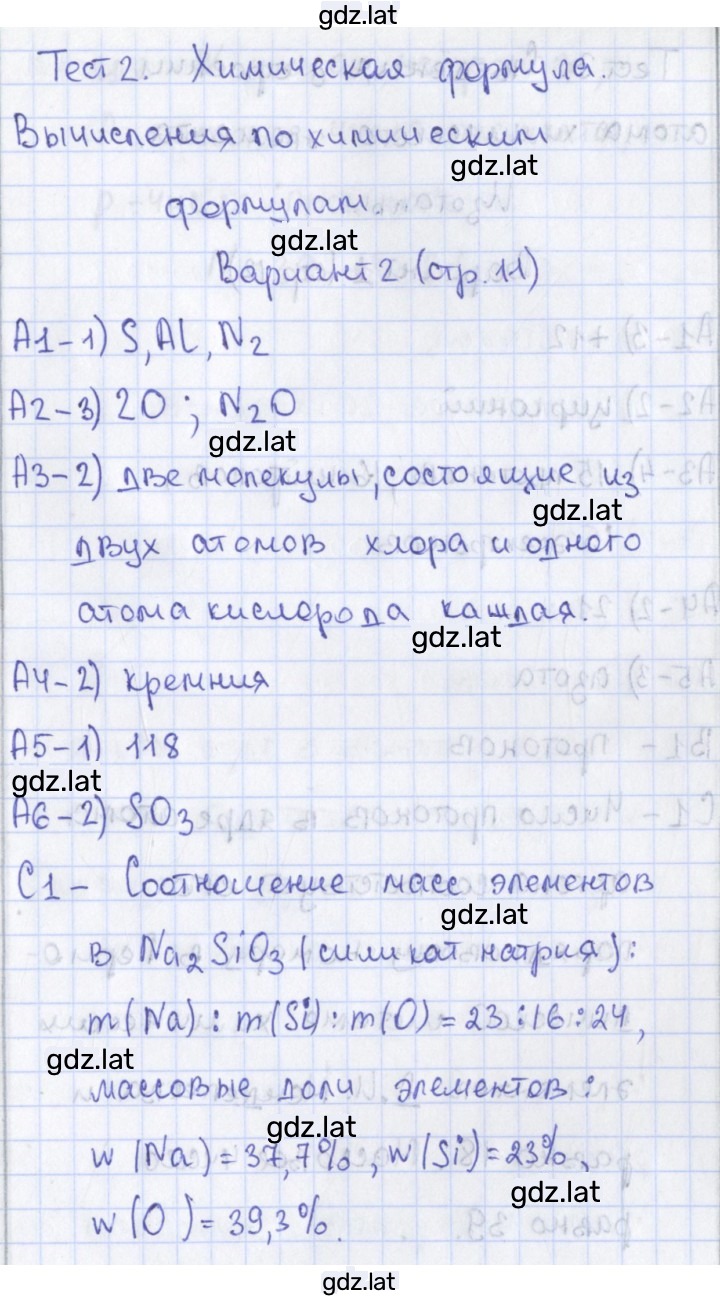 gdz.lat
Тест 2. Химическая формула.
Вычисления по химическим
gdz.lat
формулам.
gdz.lat
Вариант 2 (стр. 11)
А1-1) S, Al, N2
А2-3) 2O ; N2O
gdz.lat
А3-2) две молекулы, состоящие из
gdz.lat
двух атомов хлора и одного
атома кислорода каждая.
gdz.lat
А4-2) кремния
А5-1) 118
gdz.lat
А6-2) SO3
С1 - Соотношение масс элементов
gdz.lat
в Na2SiO3 (силикат натрия):
m(Na) : m(Si) : m(O) = 23 : 16 : 24,
gdz.lat
массовые доли элементов:
gdz.lat
w (Na) = 37,7%, w (Si) = 23%,
gdz.lat
w (O) = 39,3%.
gdz.lat